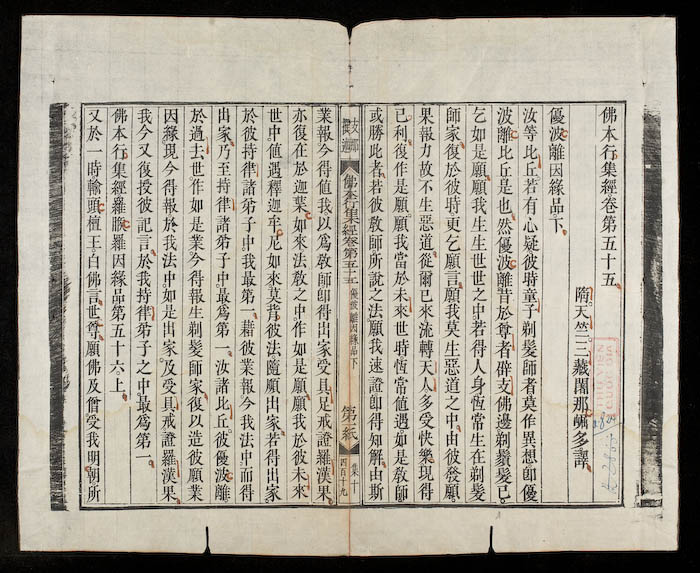 佛本行集經卷第五十五
隋天竺三藏闍那崛多譯
優波離因緣品下
汝等比丘若有心疑彼時童子剃髮師者莫作異想卽優
波離比丘是也然優波離昔於尊者辟支佛邊剃鬚髮已
乞如是願願我生生世世之中若得人身恆常生在剃髮
師家復於彼時更乞願言願我莫生惡道之中由彼發願
果報力故不生惡道從爾已來流轉天人多受快樂現得
己利復作是願願我當於未來世時恆當值遇如是敎師
或勝此者若彼敎師所說之法願我速證卽得知解由斯
支那
撰述
佛本行集經卷第五十五
優波離因緣品下
第一紙
集十
四百十九
業報今得值我以爲敎師卽得出家受具足戒證羅漢果
亦復在於迦葉如來法敎之中作如是願願我於彼未來
世中值遇釋迦牟尼如來莫背彼法隨願出家若得出家
於彼持律諸弟子中我最第一藉彼業報今我法中而得
出家乃至持律諸弟子中最爲第一汝諸比丘彼優波離
於過去世作如是業今得報生剃髮師家復以造彼願業
因緣現今得報於我法中如是出家及受具戒證羅漢果
我今又復授彼記言於我持律弟子之中最爲第一
佛本行集經羅睺羅因緣品第五十六上
又於一時輸頭檀王白佛言世尊願佛及僧受我明朝所